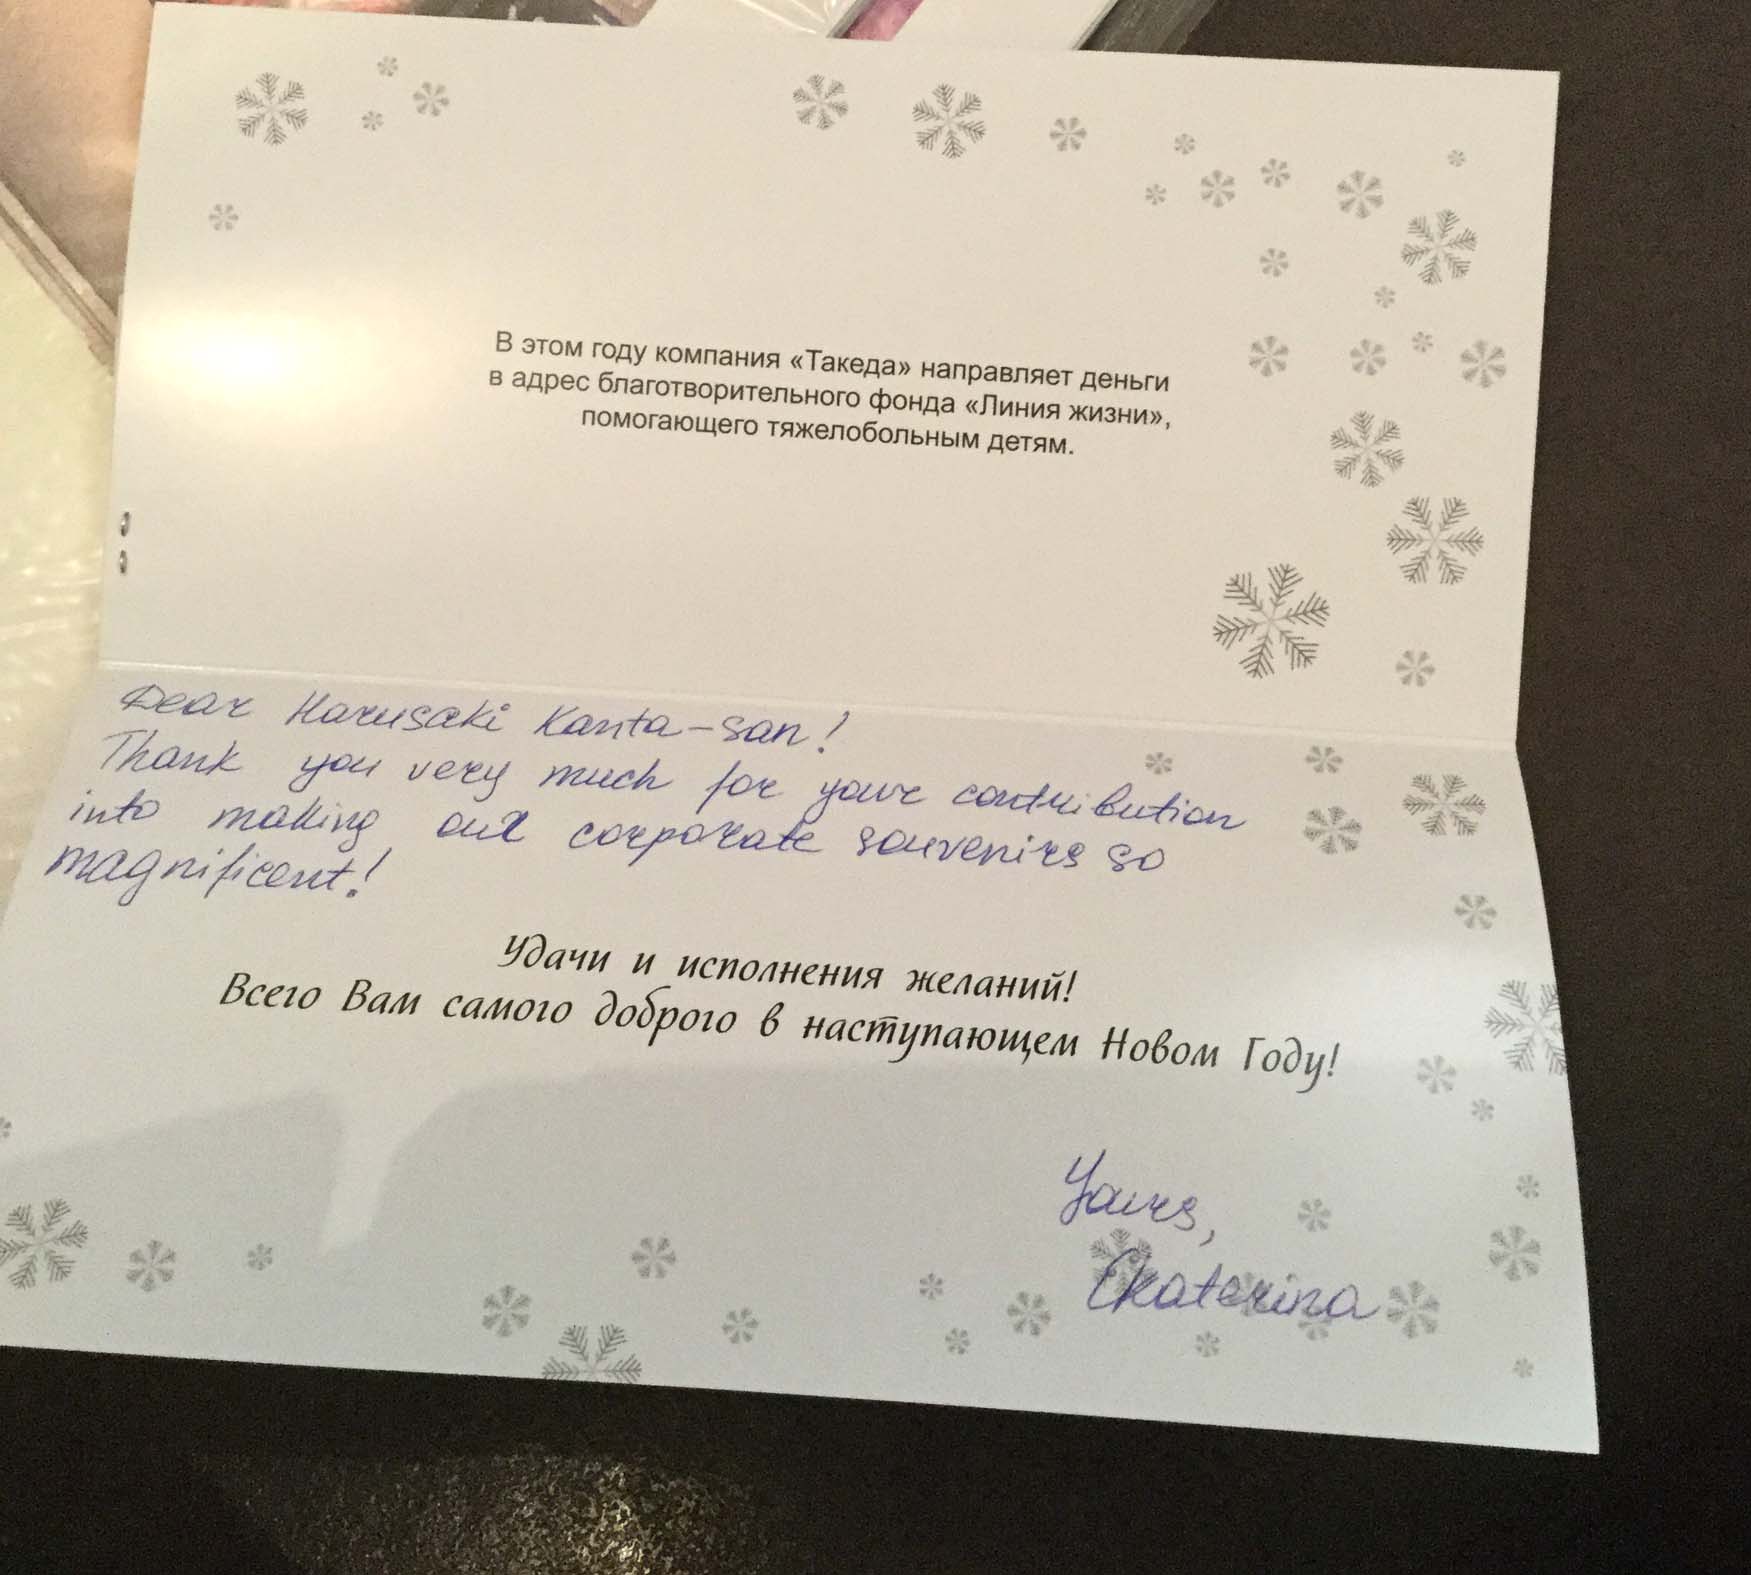 В этом году компания «Такеда» направляет деньги
в адрес благотворительного фонда «Линия жизни»,
помогающего тяжелобольным детям.
Dear Harusaki Kanta-san!
Thank you very much for your contribution
into making our corporate souvenirs so
magnificent!
Удачи и исполнения желаний!
Всего Вам самого доброго в наступающем Новом Году!
Yours,
Ekaterina